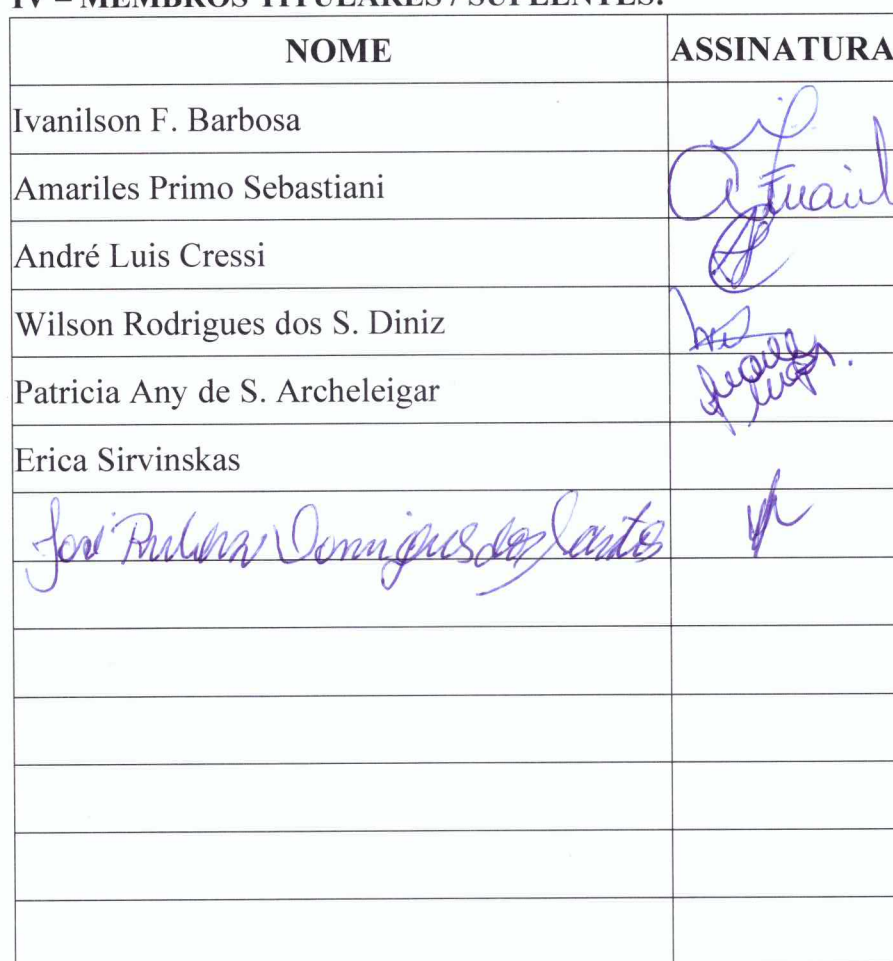 IV – MEMBROS TITULARES / SUPLENTES:
NOME ASSINATURA
Ivanilson F. Barbosa
Amariles Primo Sebastiani
André Luis Cressi
Wilson Rodrigues dos S. Diniz
Patricia Any de S. Archeleigar
Erica Sirvinskas
José Domingues dos Santos